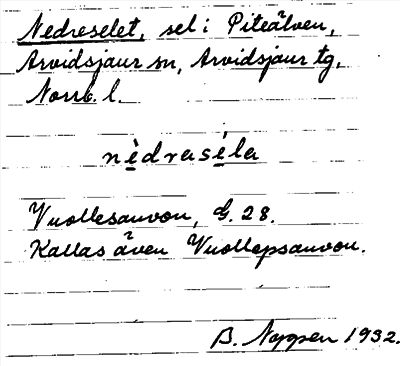 Nedreselet, sel i Piteälven,
Arvidsjaur sn, Arvidsjaur tg,
Norrb. l.
nèdraséla
Vuollesauvon, G. 28.
Kallas även Vuollepsauvou.
B. Noppen 1932.